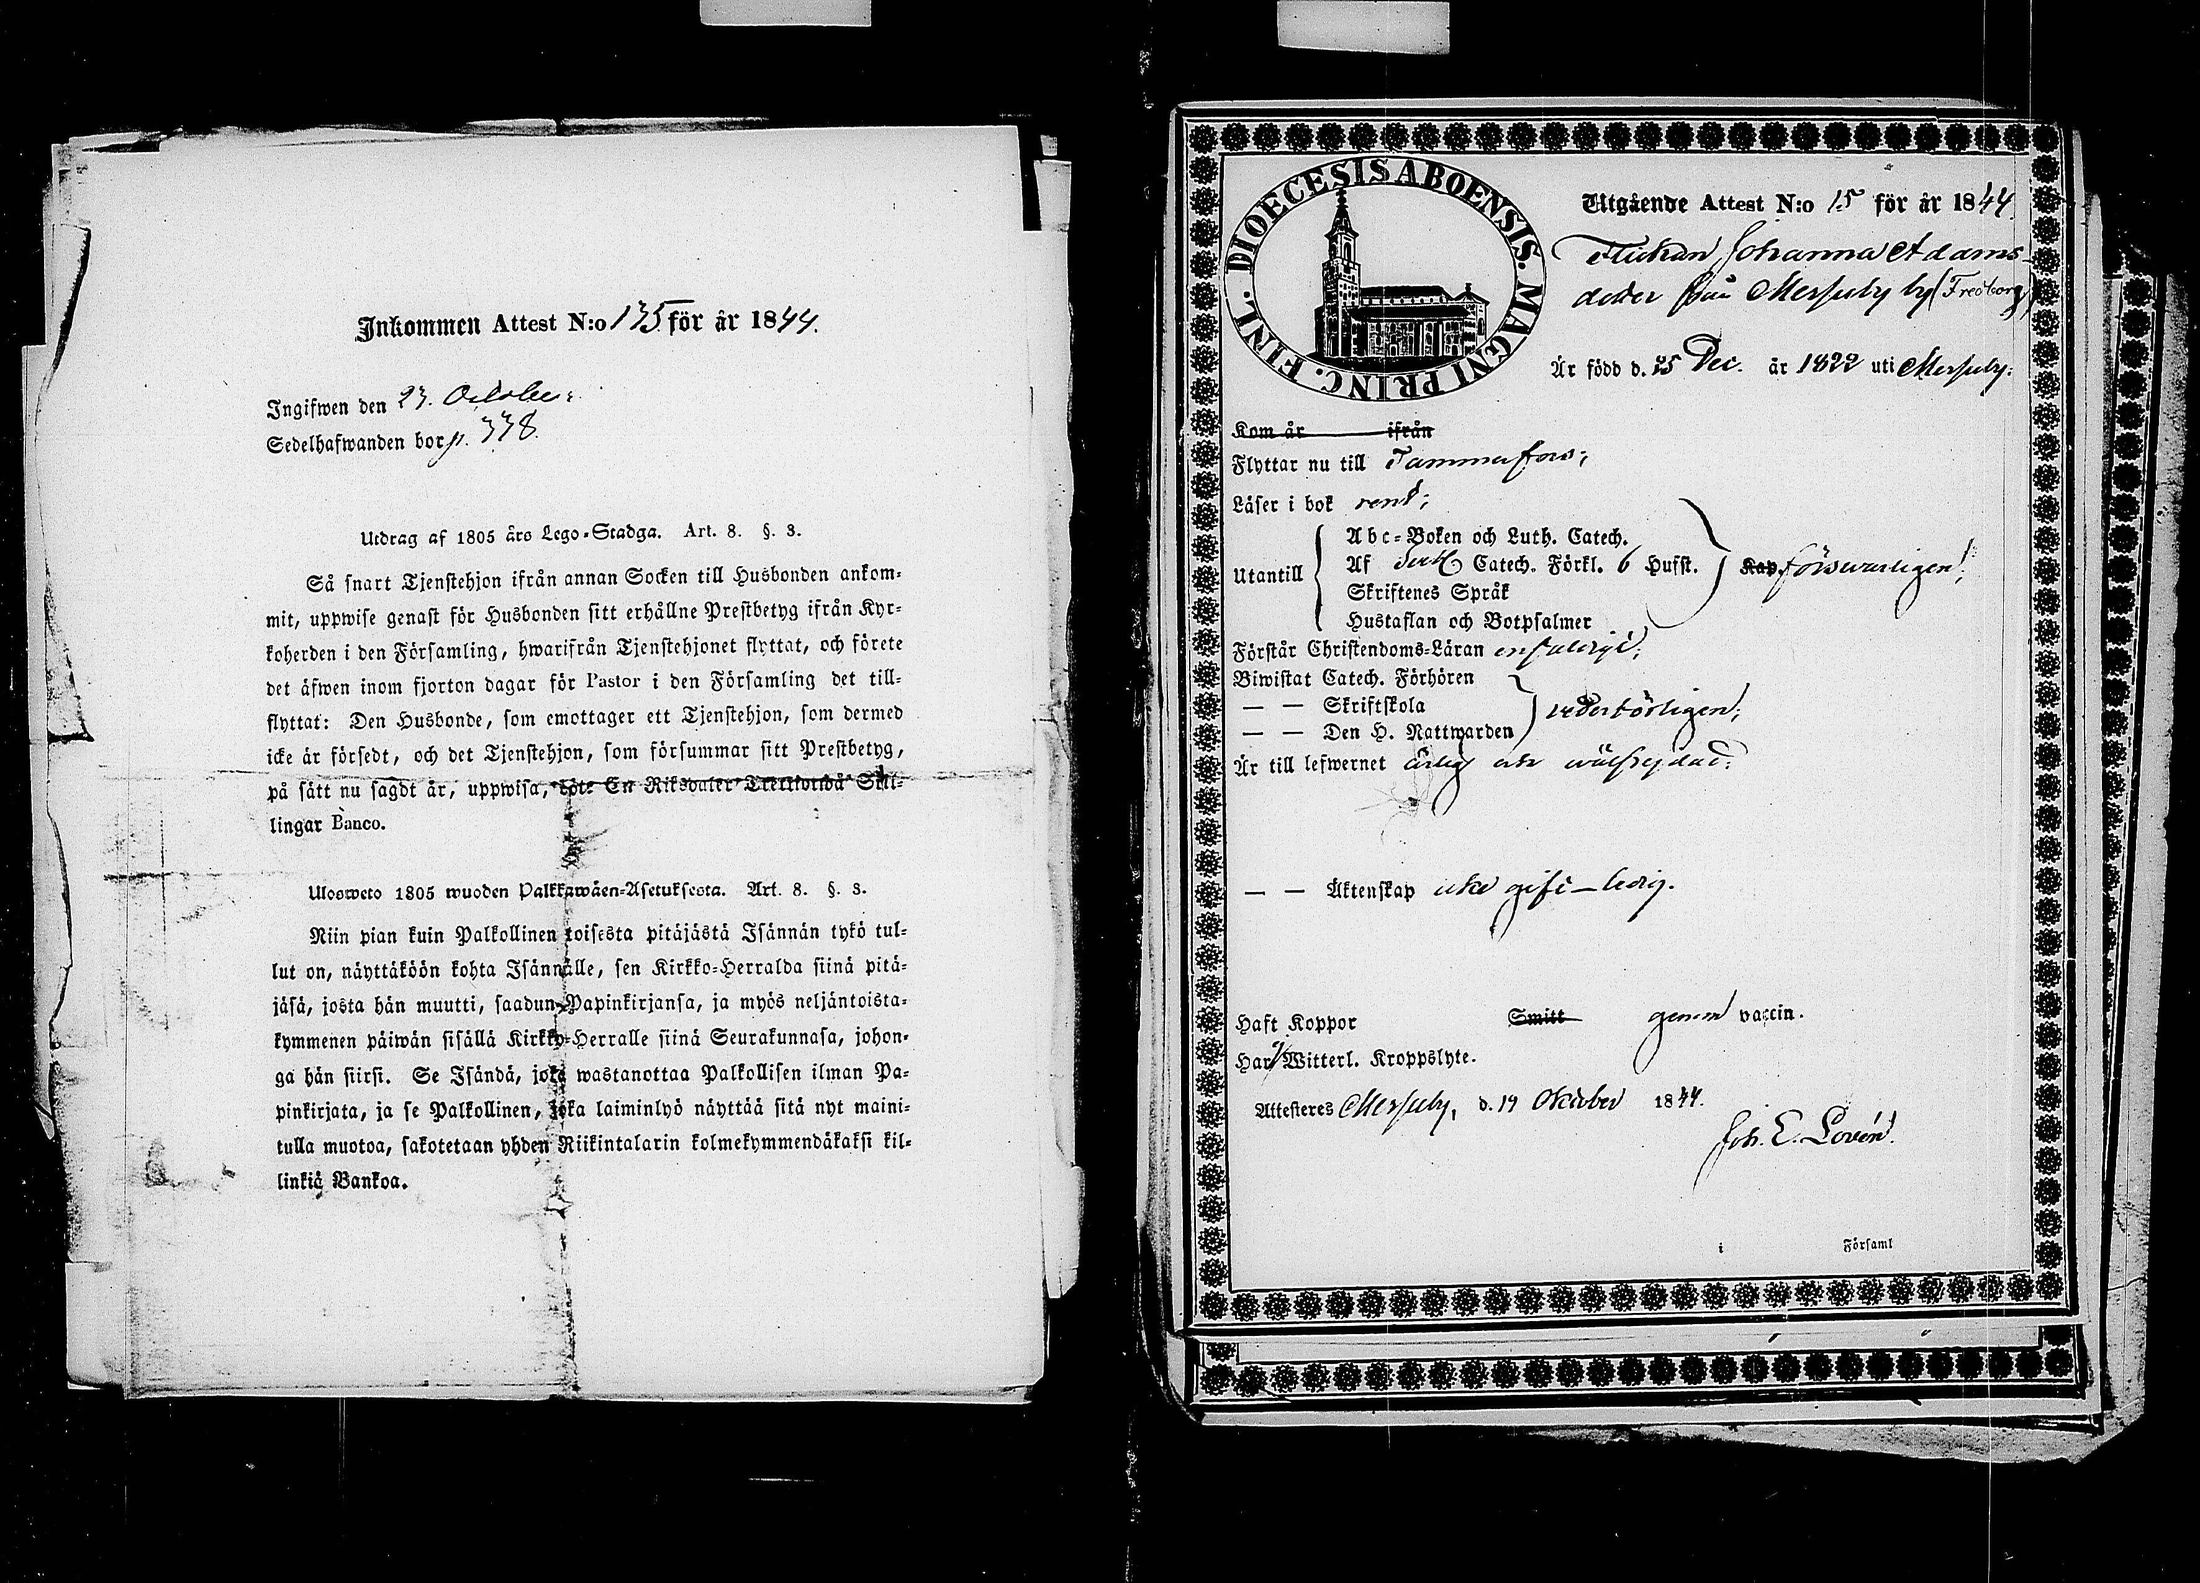 Inkommen Attest N:o 135 för år 1844.
Ingifwen den 23. October
Sedelhafwanden bor p. 338.
Utdrag af 1805 års Lego-Stadga. Art. 8. §. 3.
Så snart Tjenstehjon ifrån annan Socken till Husbonden ankom-
mit, uppwise genast för Husbonden sitt erhållne Prestbetyg ifrån Kyr-
koherden i den Församling, hwarifrån Tjenstehjonet flyttat, och förete
det äfwen inom fjorton dagar för Pastor i den Församling det till-
flyttat: Den Husbonde, som emottager ett Tjenstehjon, som dermed
icke är försedt, och det Tjenstehjon, som försummar sitt Prestbetyg,
på sätt nu sagdt är, uppwisa, böte En Riksdaler Trettiotwå Skil-
lingar Banco.
Ulosweto 1805 wuoden Palkkawäen-Asetuksesta. Art. 8. §. 3.
Niin pian kuin Palkollinen toisesta pitäjästä Isännän tykö tul-
lut on, näyttäköön kohta Isännälle, sen Kirkko-Herralda siinä pitä-
jäsä, josta hän muutti, saadun Papinkirjansa, ja myös neljäntoista-
kymmenen päiwän sisällä Kirkko-Herralle siinä Seurakunnasa, johon-
ga hän siirsi. Se Isändä, joka wastanottaa Palkollisen ilman Pa-
pinkirjata, ja se Palkollinen, joka laiminlyö näyttää sitä nyt maini-
tulla muotoa, sakotetaan yhden Riikintalarin kolmekymmendäkaksi kil-
linkiä Bankoa.
DIOECESIS ABOENSIS. MAGNI PRINC. FINL.
Utgående Attest N:o 15 för år 1844
Flickan Johanna Adams-
dotter från Mersuby by (Fredborg)
Är född d. 25 Dec. år 1822 uti Mersuby:
Kom år ifrån
Flyttar nu till Tammerfors;
Läser i bok rent;
Utantill
Abc-Boken och Luth. Catech.
Af Catech. Förkl. 6 Hufst.
Skriftenes Språk
Hustaflan och Botpsalmer
Kap. försvarligen;
Förstår Christendoms-Läran enfaldigt;
Biwistat Catech. Förhören
— — Skriftskola
— — Den H. Nattwarden
vederbörligen;
Är till lefwernet ärlig och wälfrejdad:
— — Äktenskap icke gift — ledig.
Haft Koppor Smitt genom vaccin.
Har Witterl. Kroppslyte.
Attesteres Mersuby, d. 19 October 1844.
Joh. E. Lovén.
i Församl